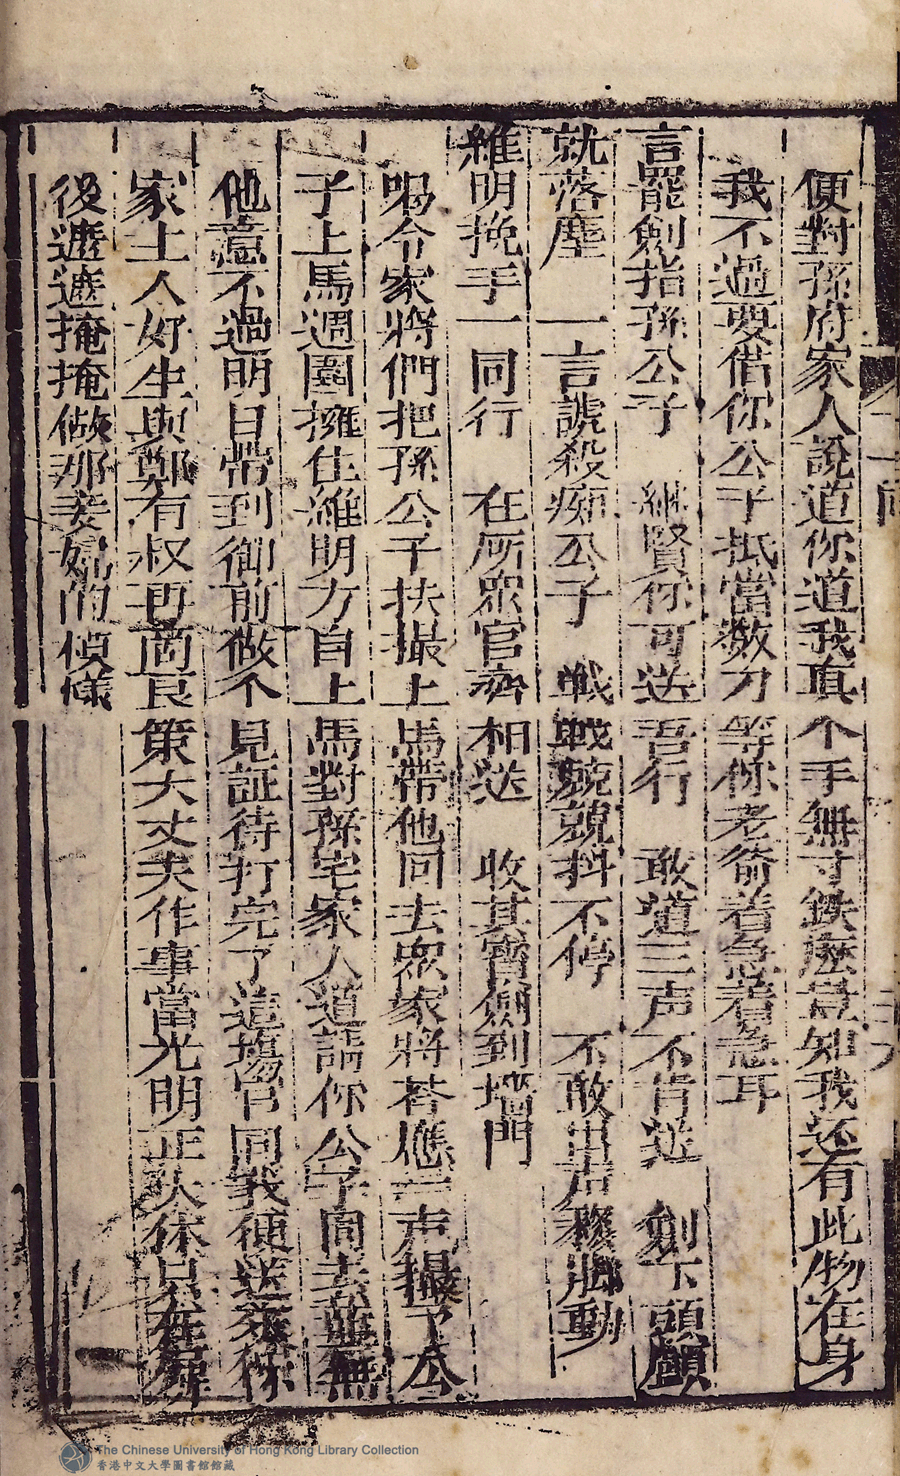 便對孫府家人說道你道我真个手無寸鉄麽豈知我还有此物在身
我不過要借你公子抵當数刀等你老爺着急着急耳
言罷劍指孫公子　継賢你可送吾行　敢道三声不肯送　劍下頭顱
就落塵　一言諕殺痴公子　戦戦兢兢抖不停　不敢出声移脚動
維明挽手一同行　在所眾官齊相送　收其寳劍到墻門
喝令家將們把孫公子扶撮上馬帶他回去眾家將荅應一声撮了公
子上馬週圍擁住維明方自上馬對孫宅家人道請你公子同去並無
他意不過明日帶到御前做个見証待打完了這塲官司我便送來你
家主人好生與鄭有叔再啇良策大丈夫作事當光明正大休只在屏
後遮遮掩掩做那妾婦的情樣
The Chinese University of Hong Kong Library Collection
香港中文大學圖書館館藏